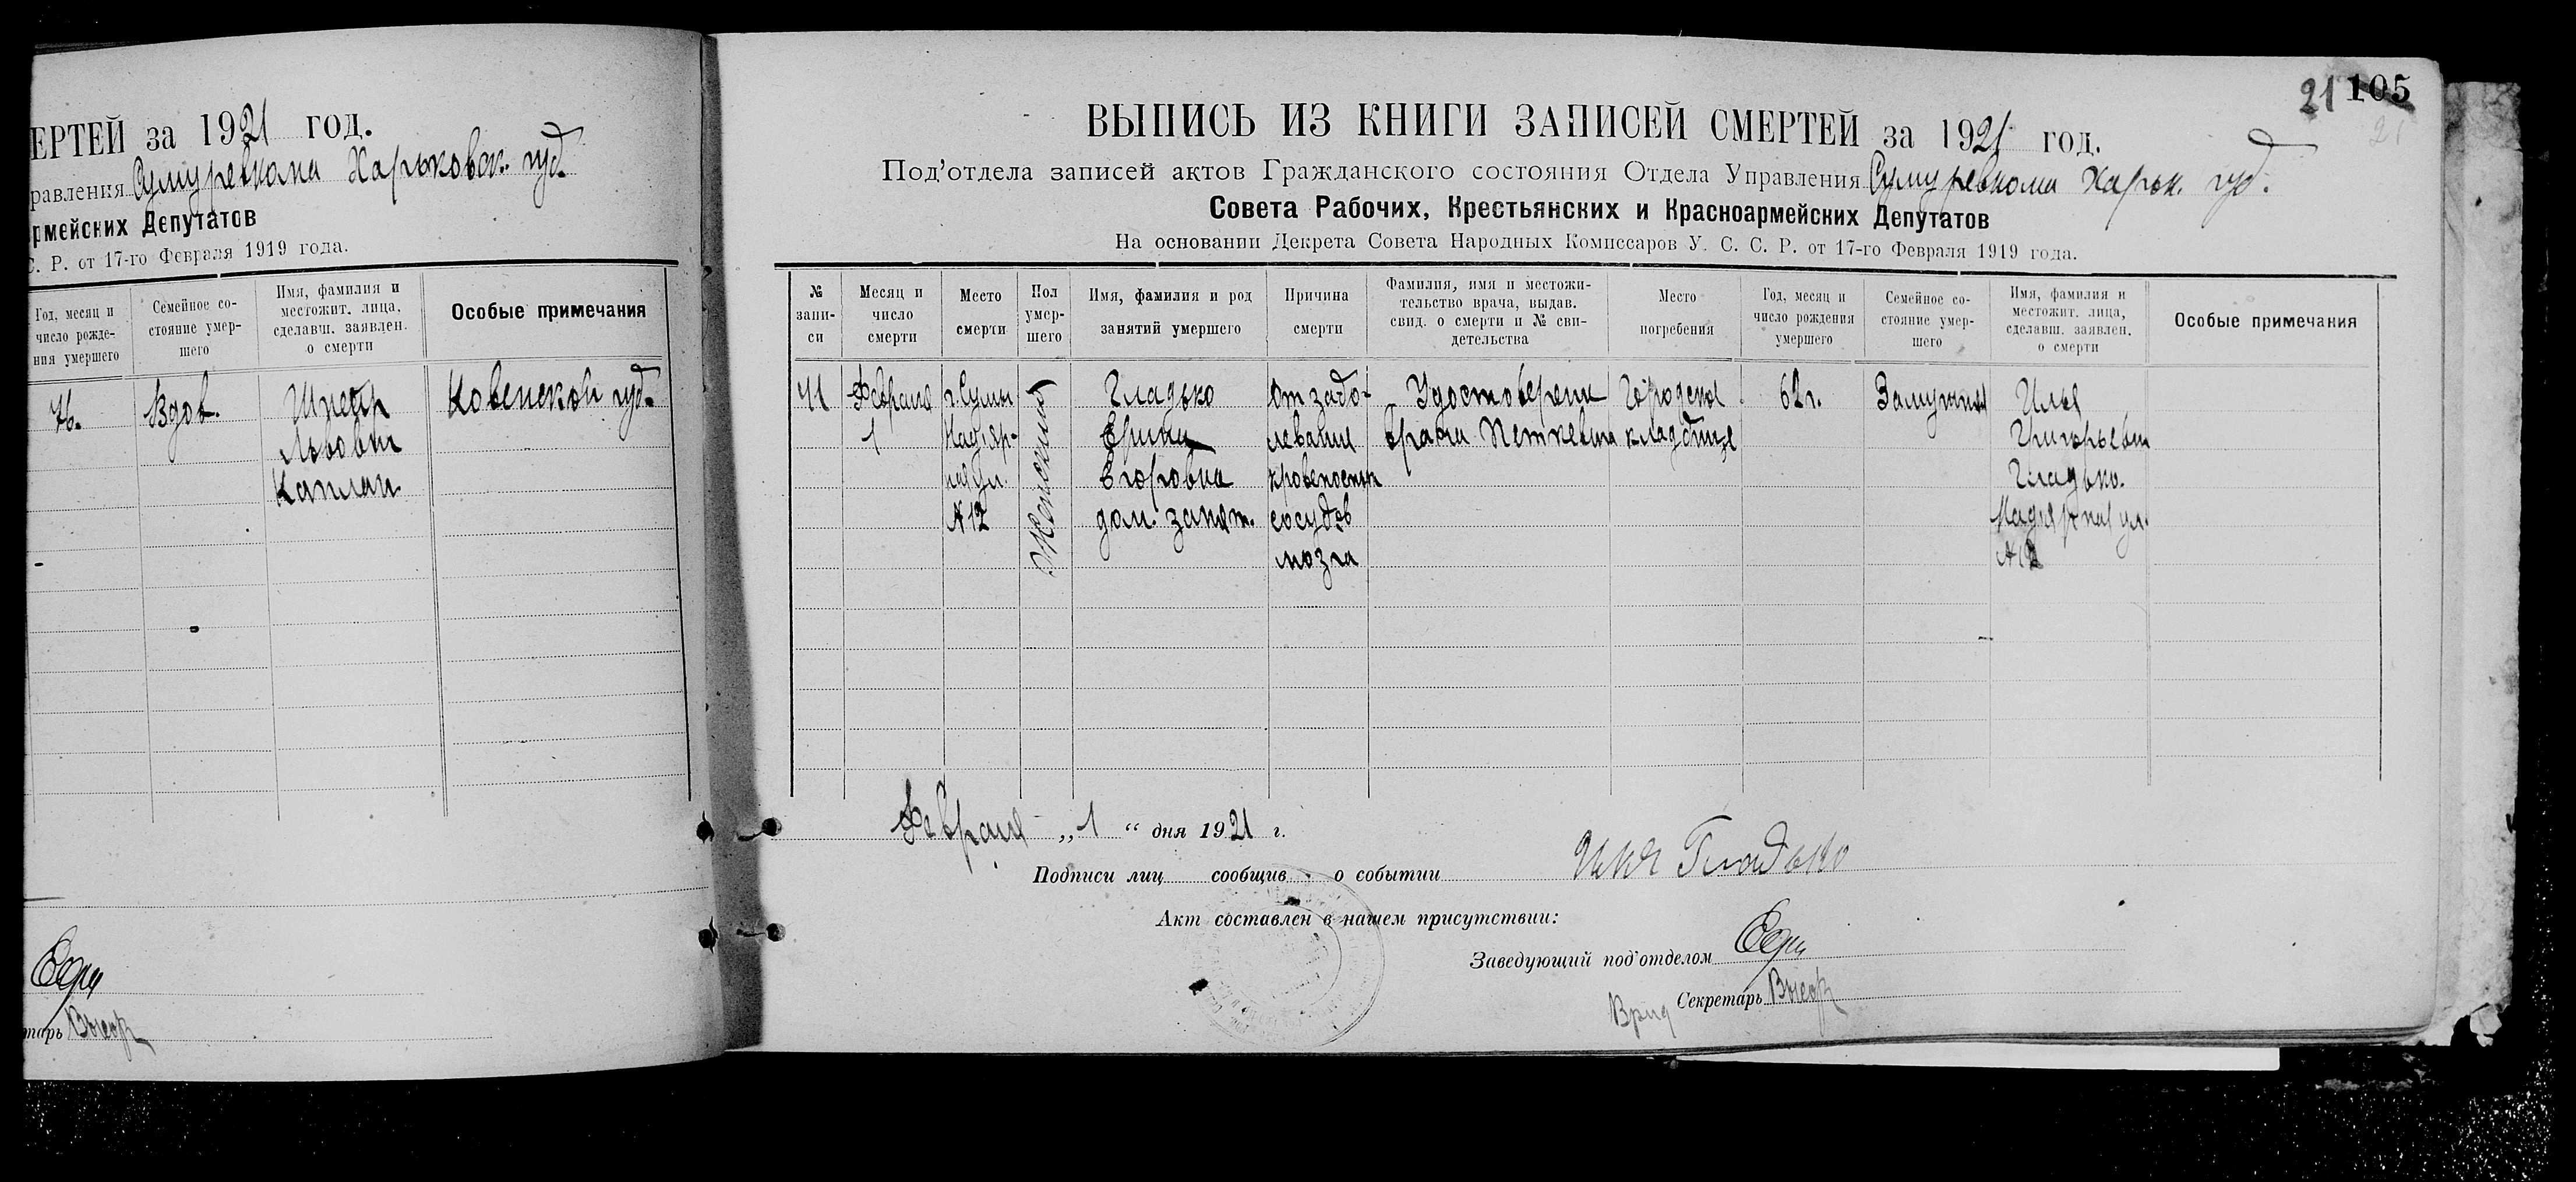 ЕРТЕЙ за 1921 год.
равления Сумуревкома Харьковск. губ.
рмейских Депутатов
С. Р. от 17-го Февраля 1919 года.
Год, месяц и
число рожде-
ния умершего
Семейное со-
стояние умер-
шего
Имя, фамилия и
местожит. лица,
сделавш. заявлен.
о смерти
Особые примечания
76.
Вдов.
Шнеер
Львович
Каплан
Ковенской губ.
тарь
21 105
21
ВЫПИСЬ ИЗ КНИГИ ЗАПИСЕЙ СМЕРТЕЙ за 1921 год.
Под'отдела записей актов Гражданского состояния Отдела Управления Сумуревкома Харьк. губ.
Совета Рабочих, Крестьянских и Красноармейских Депутатов
На основании Декрета Совета Народных Комиссаров У. С. С. Р. от 17-го Февраля 1919 года.
№
запи-
си
Месяц и
число
смерти
Место
смерти
Пол
умер-
шего
Имя, фамилия и род
занятий умершего
Причина
смерти
Фамилия, имя и местожи-
тельство врача, выдав.
свид. о смерти и № сви-
детельства
Место
погребения
Год, месяц и
число рождения
умершего
Семейное со-
стояние умер-
шего
Имя, фамилия и
местожит. лица,
сделавш. заявлен.
о смерти
Особые примечания
Февраля
1
г. Сумы
ул.
№ 12
Женский
Гладько
Егоровна
дом. занят.
От забо-
левание
кровеносных
сосудов
мозга
Удостоверени
врача Петкевича
Городское
кладбище
62 г.
Замужняя
Илья
Григорьевич
Гладько.
ул.
№ 12
Февраля „ 1 “ дня 1921 г.
Подписи лиц сообщив о событии Илья Гладько
Акт составлен в нашем присутствии:
Заведующий под'отделом
Врид Секретарь